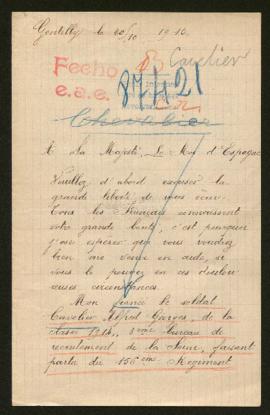 Gentilly le 20/10 1916.
Cavelier
Fecho
e.a.e.
87421
Chevalier
A Sa Majesté Le Roi d'Espagne
Veuillez d'abord excuser la
grande liberté de vous écrire
Tous les Français connaissent
votre grande bonté, c'est pourquoi
j'ose espérer que vous voudrez
bien me venir en aide, si
vous le pouvez en ces douloureuses
circonstances.
Mon fiancé le soldat
Cavelier Alfred Georges, de la
classe 1914, 3ème bureau de
recrutement de la Seine, faisant
partie du 156ème Régiment